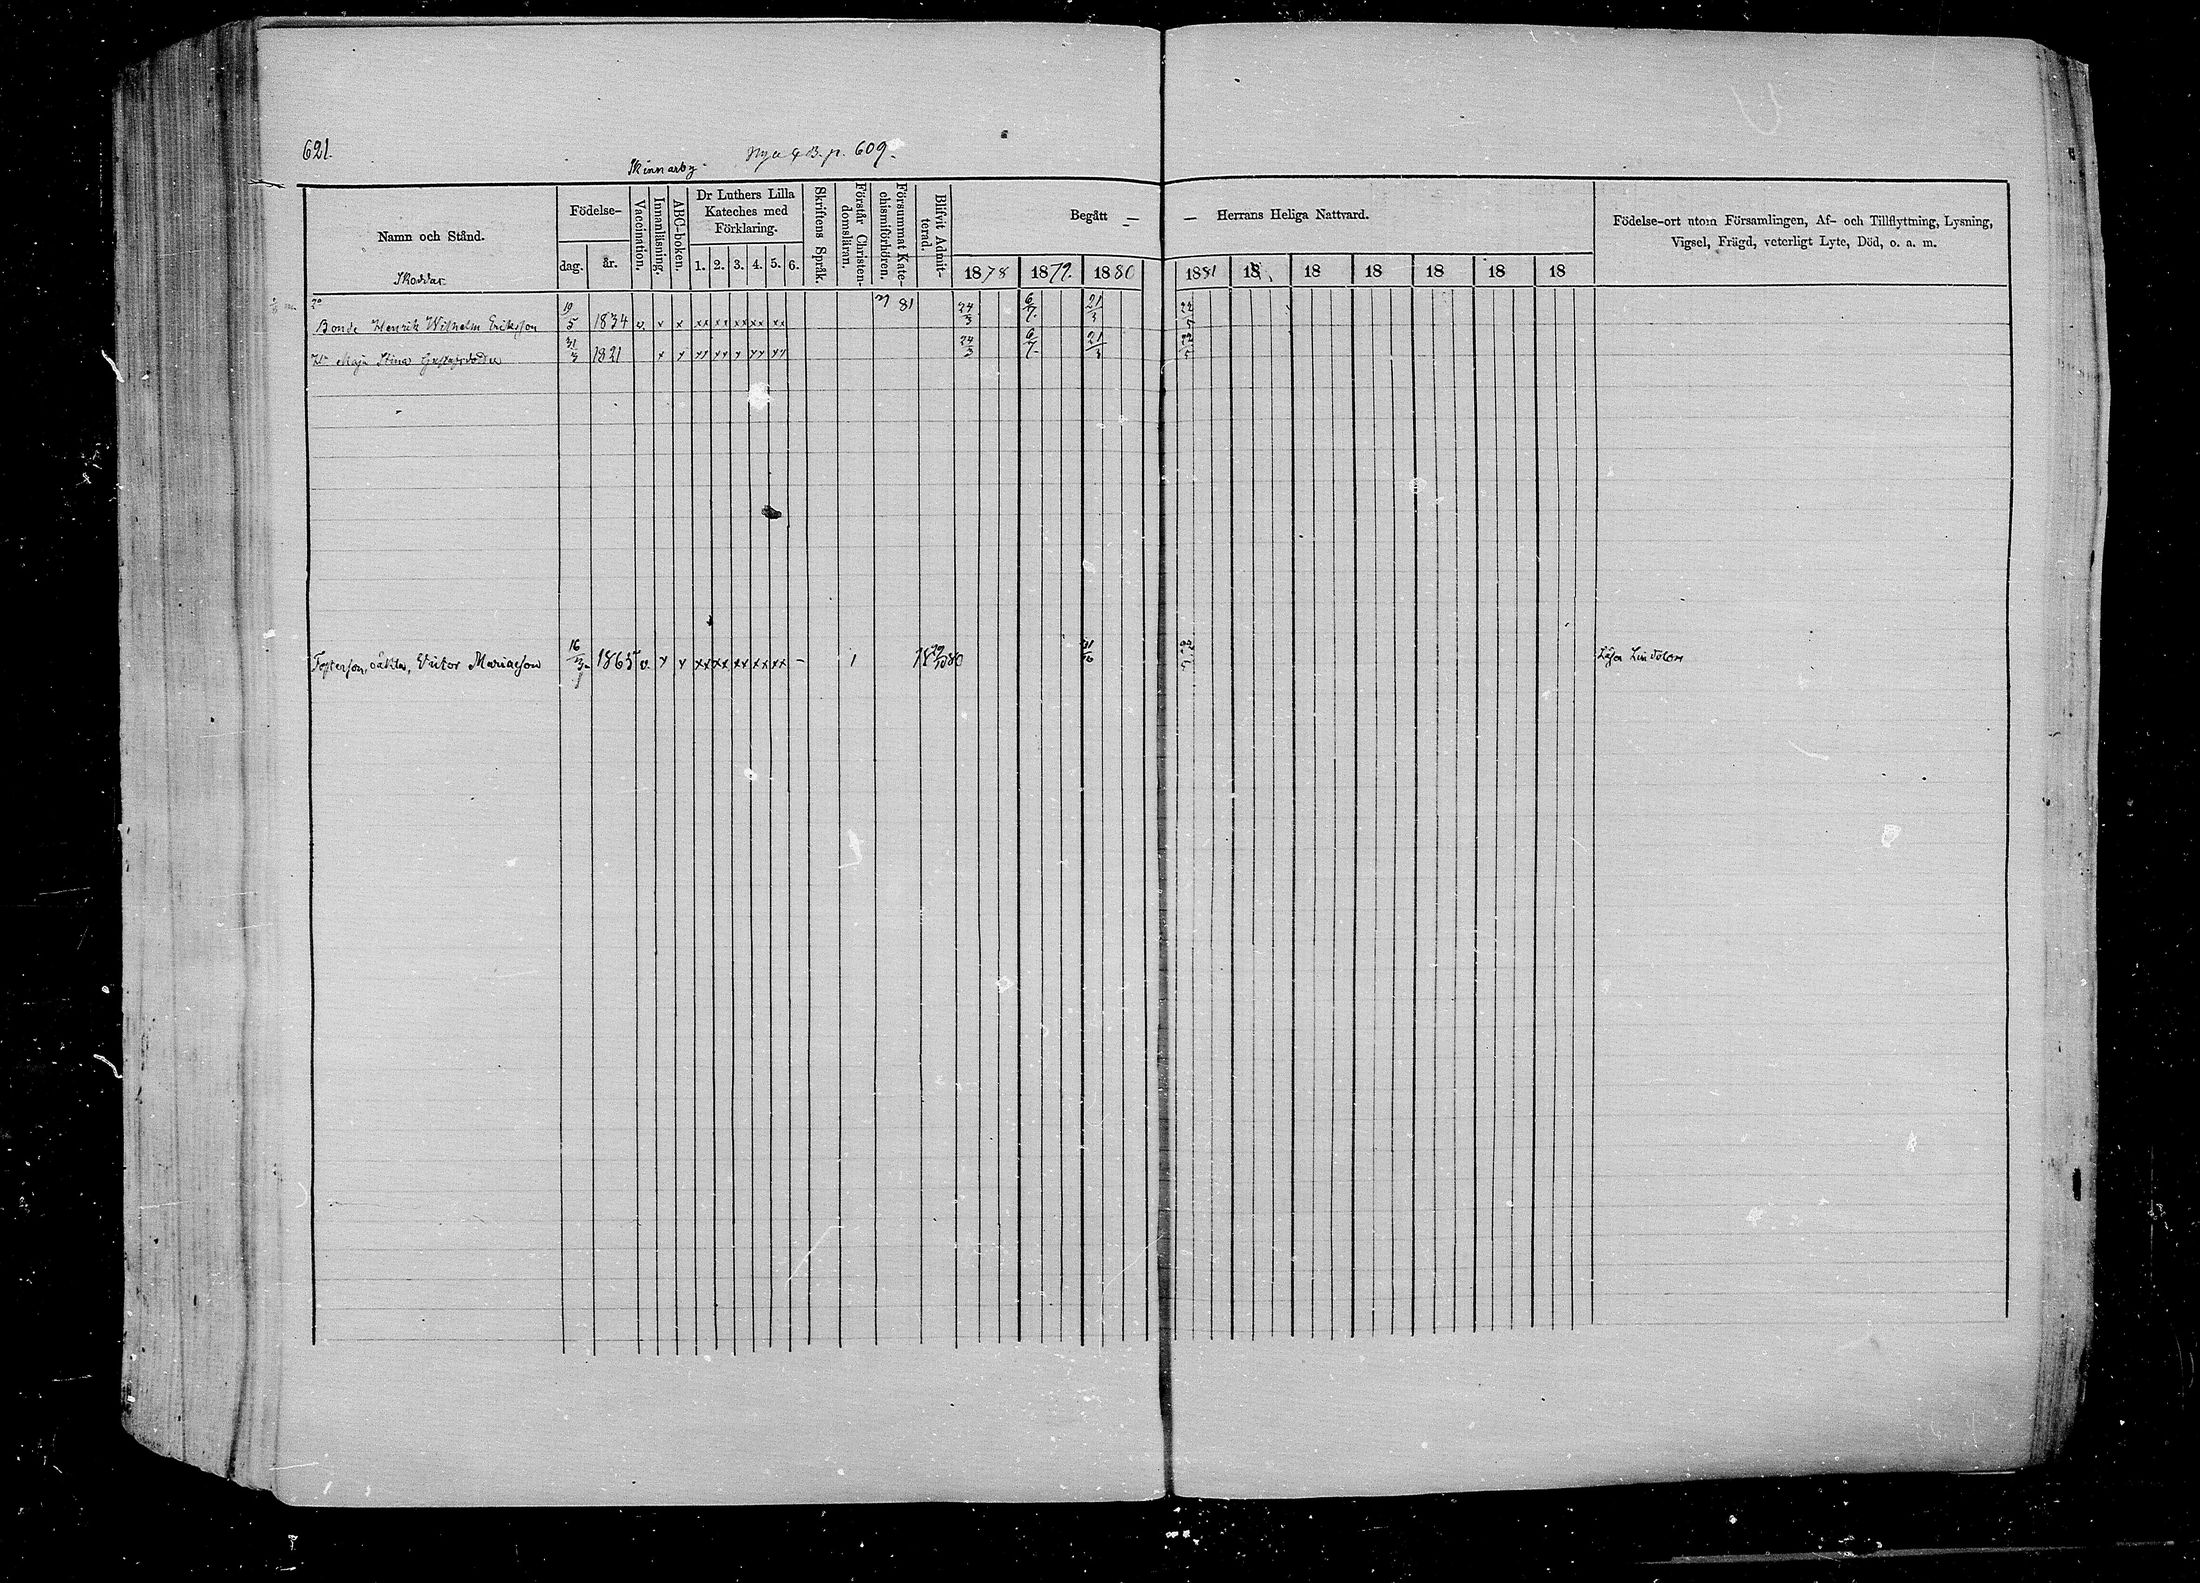 621.
Skinnarby. Nya q B. p. 609.
Namn och Stånd.
Skoddar.
Födelse-
dag. år.
Vaccination.
Innanläsning.
ABC-boken.
Dr Luthers Lilla
Kateches med
Förklaring.
1. 2. 3. 4. 5. 6.
Skriftens Språk.
Förstår Christen-
domsläran.
Försummat Kate-
chismiförhören.
Blifvit Admit-
terad.
Begått — — Herrans Heliga Nattvard.
1878 1879. 1880 1881 18 18 18 18 18 18
Födelse-ort utom Församlingen, Af- och Tillflyttning, Lysning,
Vigsel, Frägd, veterligt Lyte, Död, o. a. m.
Bonde Henrik Wilhelm Eriksson 19/5 1834 v. x x xx xx xx xx xx 81 24/3 6/7 21/3
H:u Maja Stina Gustafsdotter 31/3 1821 x x xx xx x xx xx 24/3 6/7 21/3
Fosterson, oäkta, Viktor Mariaeson 16/3 1865 v. x x xx xx xx xx xx – 1